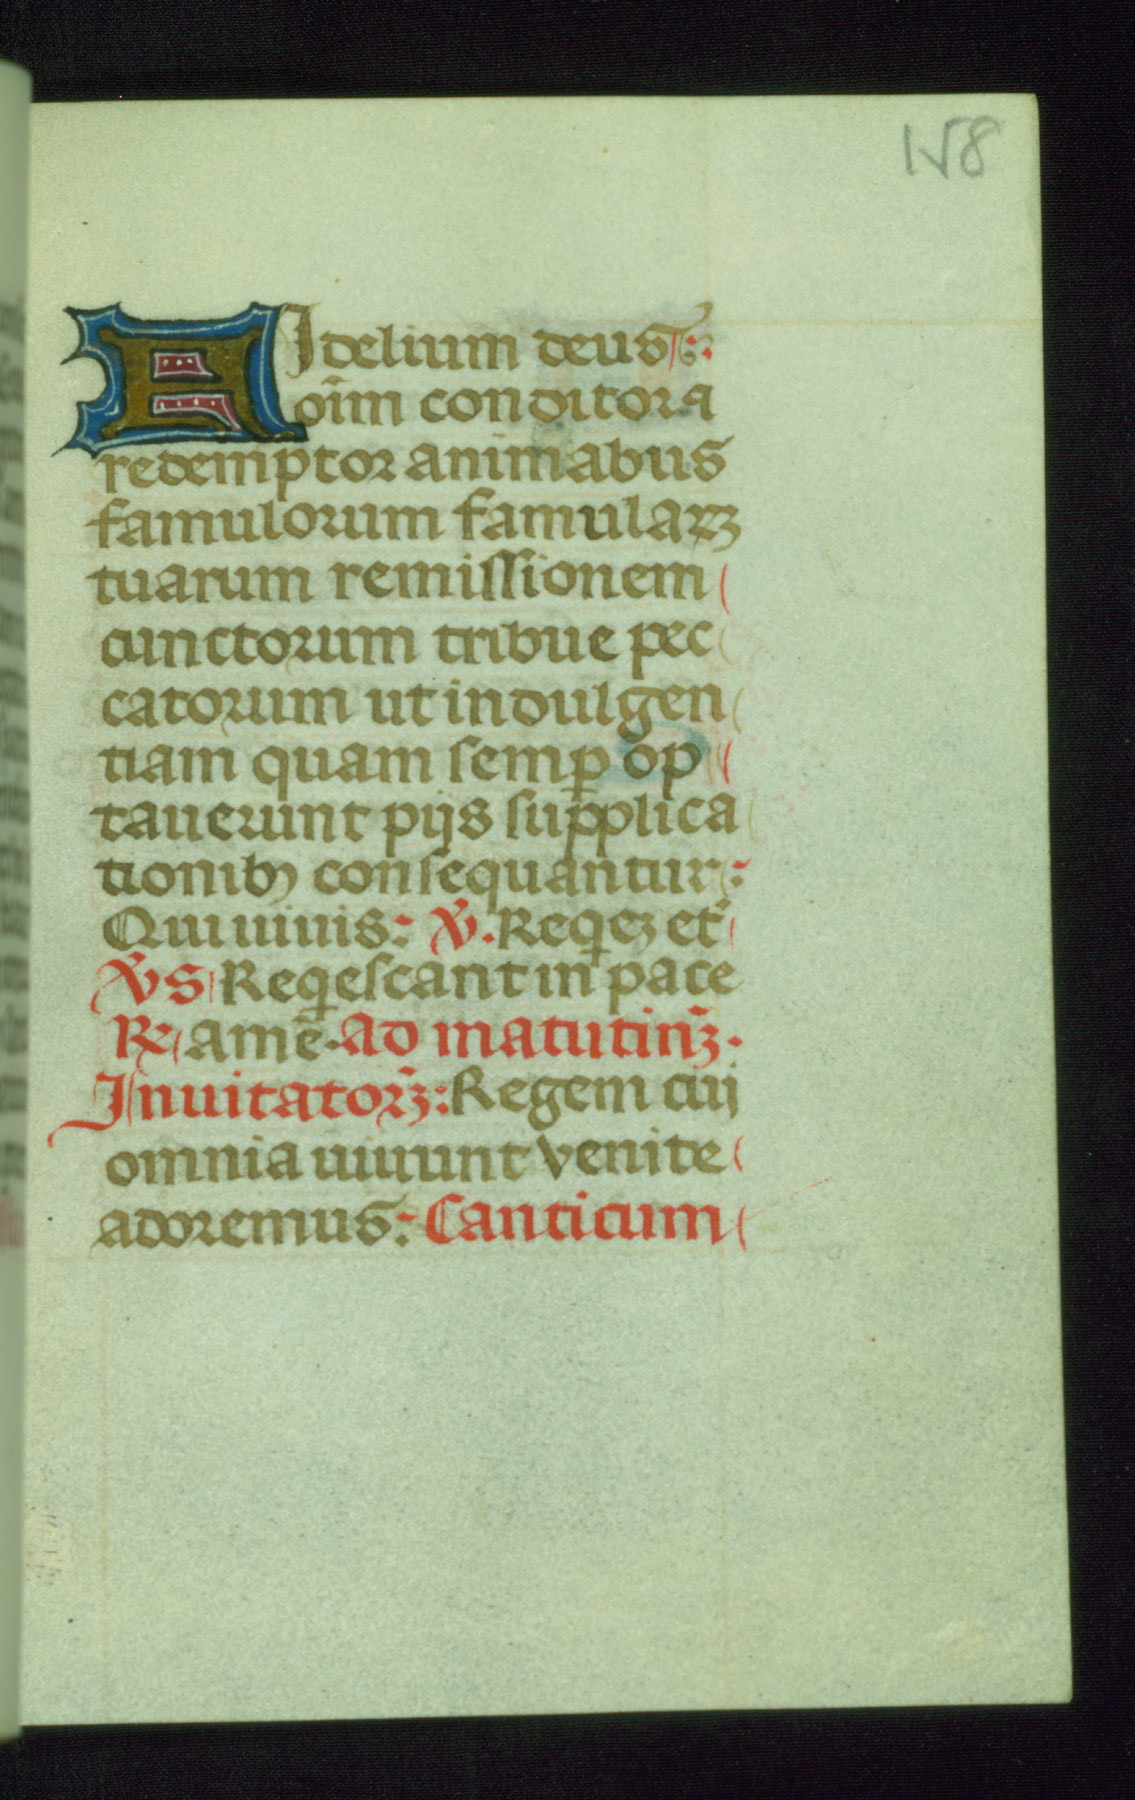 158
FIdelium deus:
oīm conditor ⁊
redemptor animabus
famulorum famularꝝ
tuarum remissionem
cunctorum tribue pec
catorum ut indulgen
tiam quam semꝑ op
tauerunt pijs supplica
tionibꝫ consequantur:
Qui uiuis: ℣. Reqꝫ et̄
℣s Reqescant in pace
℞ amē. ad matutinꝫ.
Inuitatorꝫ: Regem cui
omnia uiuunt venite
adoremus: Canticum